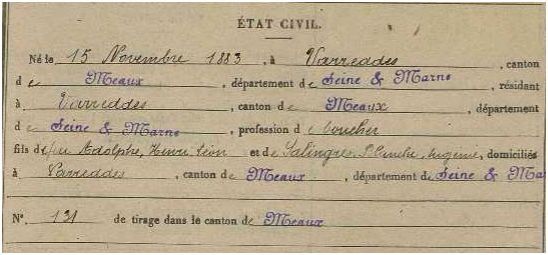 ÉTAT CIVIL.
Né le 15 Novembre 1883, à Varreddes, canton
de Meaux, département de Seine & Marne, résidant
à Varreddes, canton de Meaux, département
de Seine & Marne, profession de boucher
fils de feu Adolphe, Henri Léon et de Salingre, Eugénie, domiciliés
à Varreddes, canton de Meaux, département de Seine & Ma
N° 131 de tirage dans le canton de Meaux